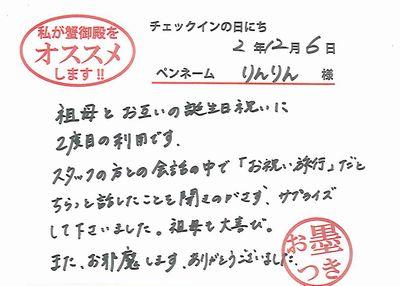 私が蟹御殿を
オススメ
します!!
チェックインの日にち
2 年 12 月 6 日
ペンネーム りんりん 様
祖母と お互いの誕生日祝いに
2度目の利用です.
スタッフの方との会話の中で「お祝い旅行」だと
ちらっと話したことを聞きのがさず、サプライズ
して下さいました。祖母も大喜び。
また、お邪魔します、ありがとうございました.
お墨
つき